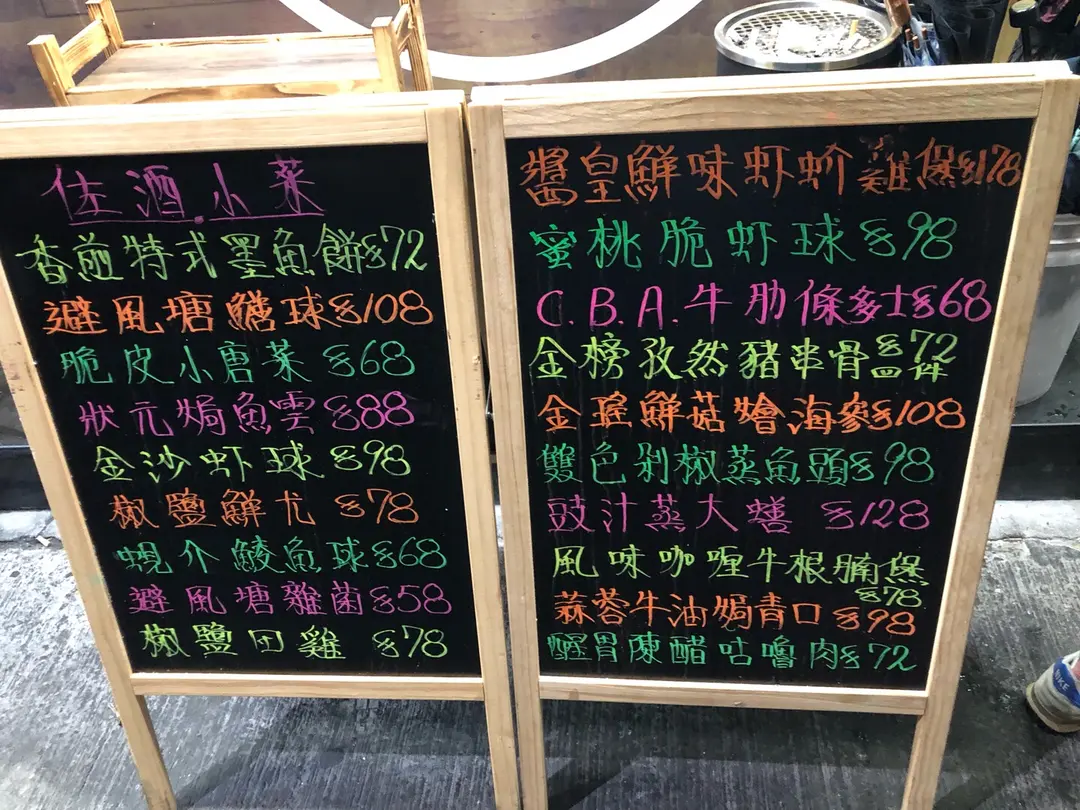 住酒小菜
香煎特式墨魚餅$72
避風塘鱔球$108
脆皮小唐菜$68
狀元焗魚雲$88
金沙虾球$98
椒鹽鮮尤$78
蜆介鯪魚球$68
避風塘雜菌$58
椒鹽田雞$78
醬皇鮮味虾蚧雞煲$178
蜜桃脆虾球$98
C.B.A.牛肋條多士$68
金榜孜然豬串骨$72四件
金瑤鮮菇燴海參$108
雙色剁椒蒸魚頭$98
豉汁蒸大鱔$128
風味咖喱牛根腩煲
$78
蒜蓉牛油焗青口$98
醒胃陳醋咕嚕肉$72
NIKE